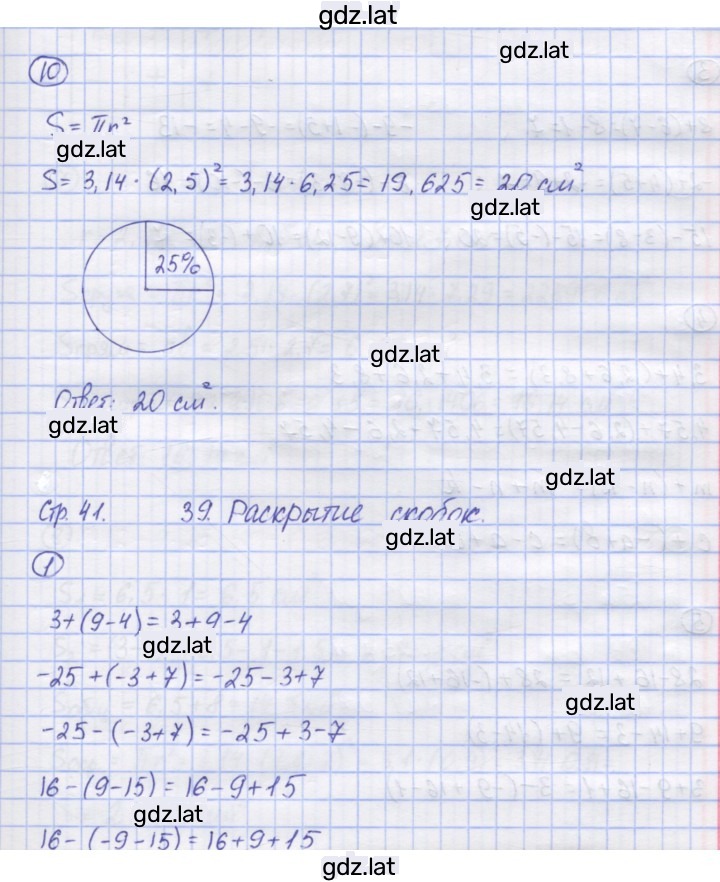 gdz.lat
10
gdz.lat
S = πr²
gdz.lat
S = 3,14 · (2,5)² = 3,14 · 6,25 = 19,625 = 20 см²
gdz.lat
25%
gdz.lat
Ответ: 20 см².
gdz.lat
gdz.lat
Стр. 41. 39. Раскрытие скобок.
gdz.lat
1
3+(9-4) = 3+9-4
gdz.lat
-25 +(-3+7) = -25-3+7
gdz.lat
-25-(-3+7) = -25+3-7
16-(9-15) = 16-9+15
gdz.lat
16-(-9-15) = 16+9+15
gdz.lat